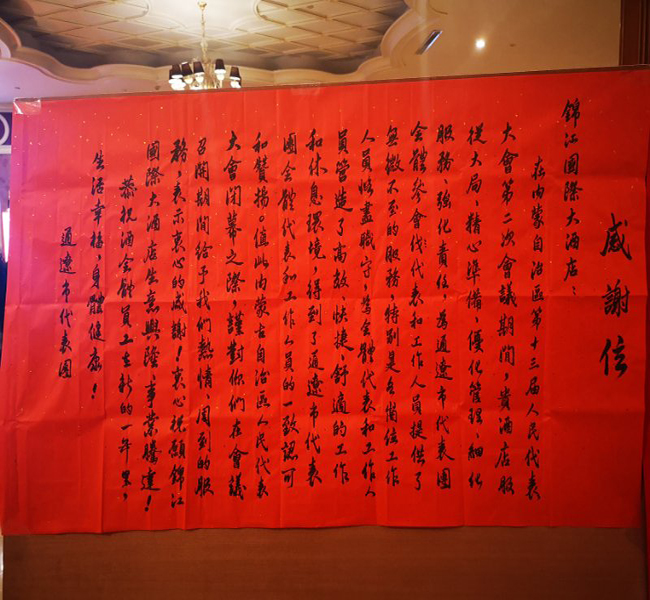 感謝信
錦江國際大酒店：
在内蒙自治區第十三届人民代表
大會第二次會議期間，貴酒店服
從大局、精心準備、優化管理、細化
服務、強化責任，為通遼市代表團
全體參會代表和工作人員提供了
無微不至的服務，特别是各崗位工作
人員恪盡職守，為全體代表和工作人
員營造了高效、快捷、舒適的工作
和休息環境，得到了通遼市代表
團全體代表和工作人員的一致認可
和贊揚。值此内蒙古自治區人民代表
大會閉幕之際，謹對你們在會議
召開期間給予我們熱情、周到的服
務，表示衷心的感謝！衷心祝願錦江
國際大酒店生意興隆，事業騰達！
恭祝酒全體員工在新的一年里，
生活幸福，身體健康！
通遼市代表團